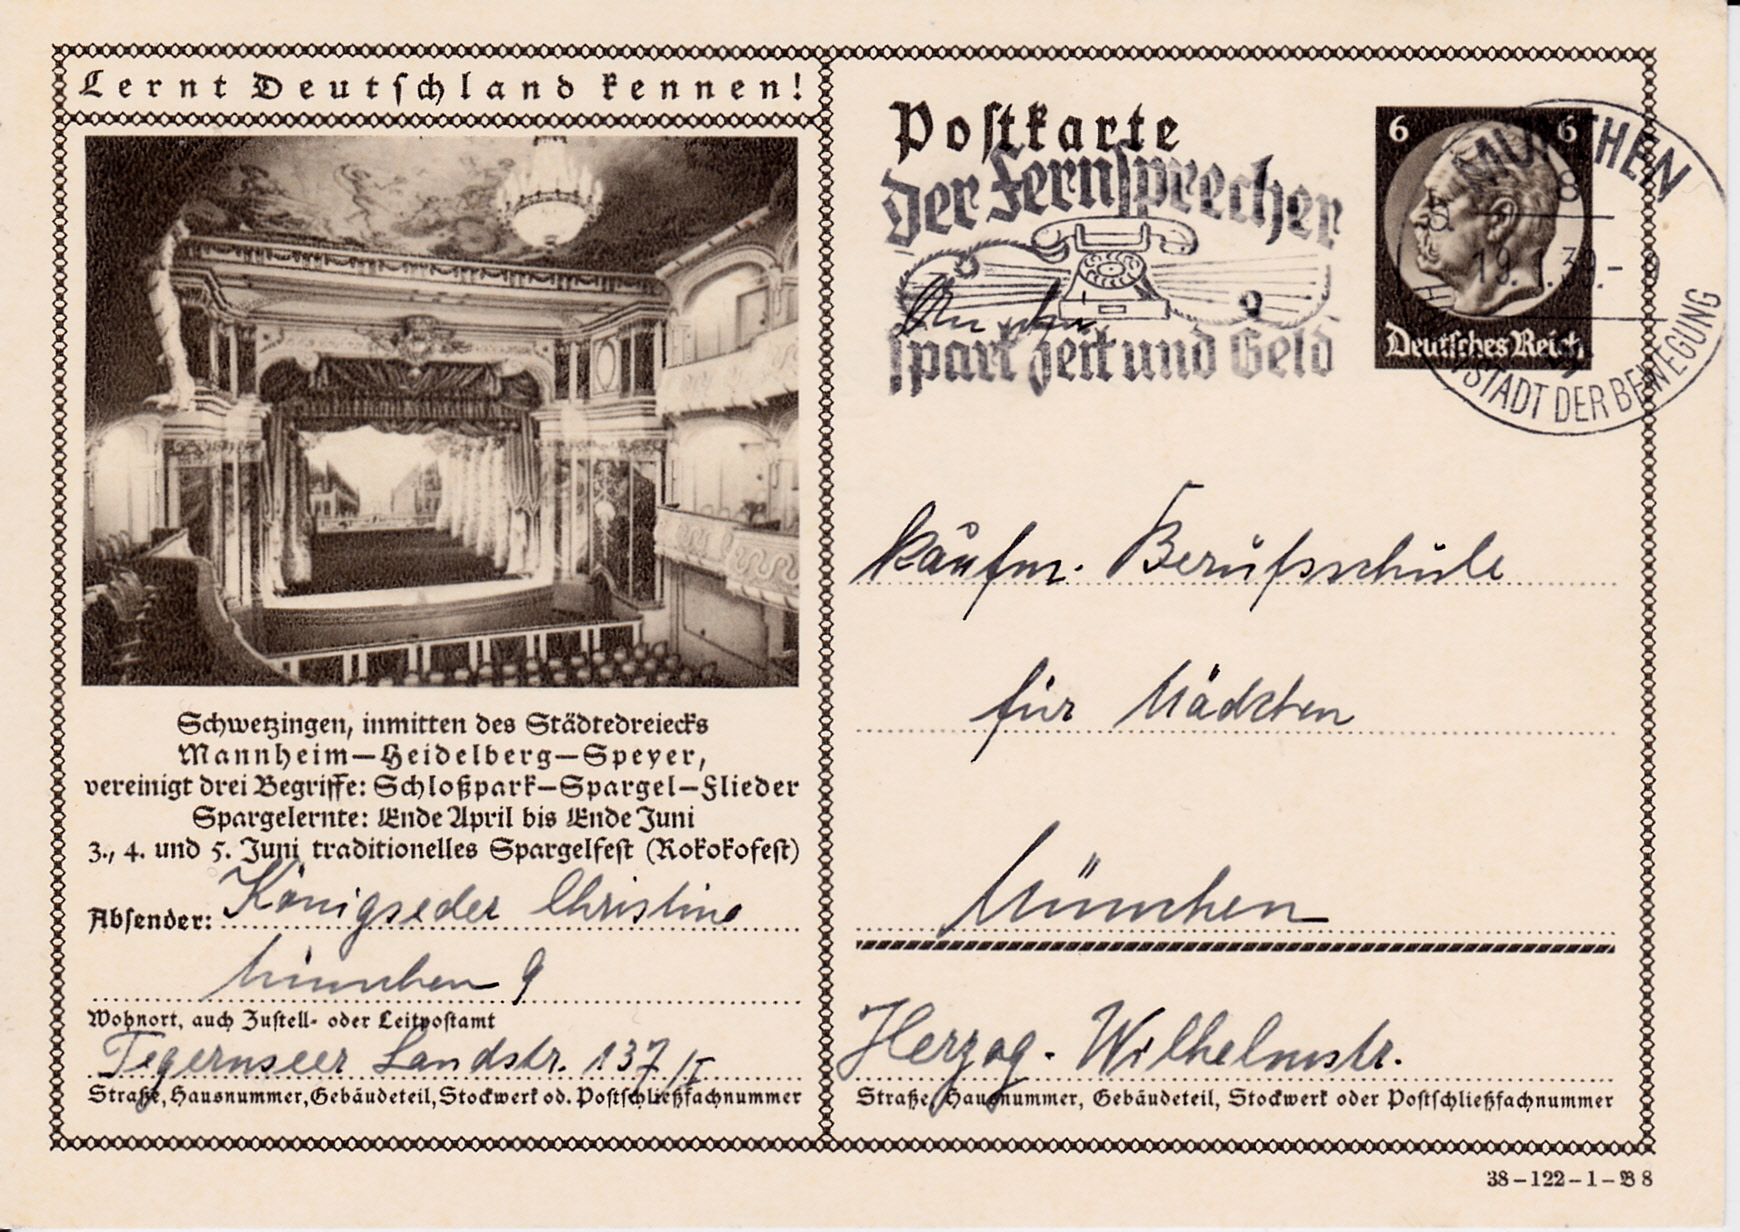 Lernt Deutschland kennen!
Schwetzingen, inmitten des Städtedreiecks
Mannheim—Heidelberg—Speyer,
vereinigt drei Begriffe: Schloßpark—Spargel—Flieder
Spargelernte: Ende April bis Ende Juni
3., 4. und 5. Juni traditionelles Spargelfest (Rokokofest)
Absender: Königseder Christine
München 9
Wohnort, auch Zustell- oder Leitpostamt
Tegernseer Landstr. 137/I
Straße, Hausnummer, Gebäudeteil, Stockwert od. Postschließfachnummer
Postkarte
Der Fernsprecher
An die
spart Zeit und Geld
6 6
Deutsches Reich
MÜNCHEN
8
19.
STADT DER BEWEGUNG
Kaufm. Berufsschule
für Mädchen
München
Herzog-Wilhelmstr.
Straße, Hausnummer, Gebäudeteil, Stockwerk oder Postschließfachnummer
38–122–1–B 8